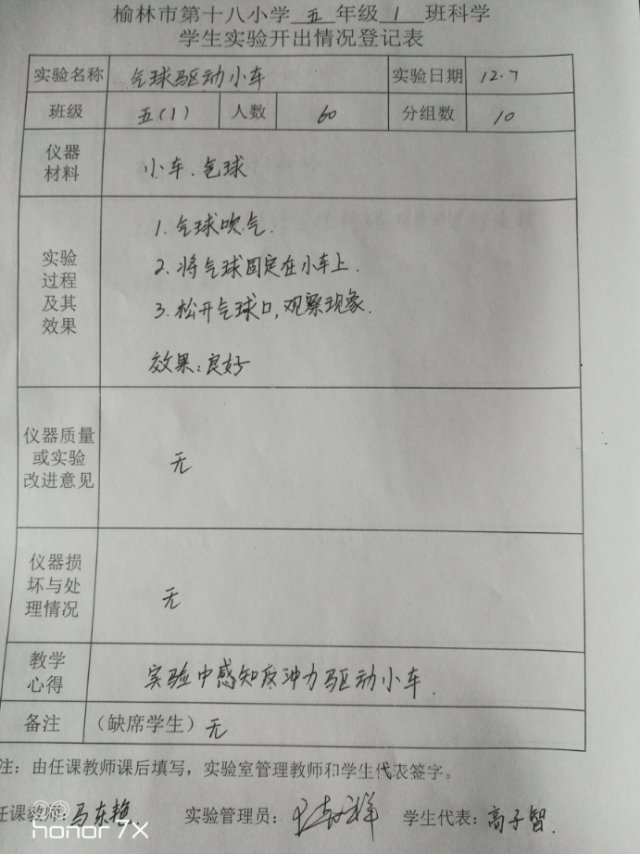 榆林市第十八小学 五 年级 1 班科学
学生实验开出情况登记表
实验名称 气球驱动小车 实验日期 12.7
班级 五(1) 人数 60 分组数 10
仪器
材料
小车、气球
实验
过程
及其
效果
1. 气球吹气.
2. 将气球固定在小车上.
3. 松开气球口,观察现象.
效果:良好
仪器质量
或实验
改进意见
无
仪器损
坏与处
理情况
无
教学
心得
实验中感知反冲力驱动小车.
备注 (缺席学生) 无
注:由任课教师课后填写,实验室管理教师和学生代表签字。
任课教师:马东艳 实验管理员: 学生代表:高子智.
honor 7X